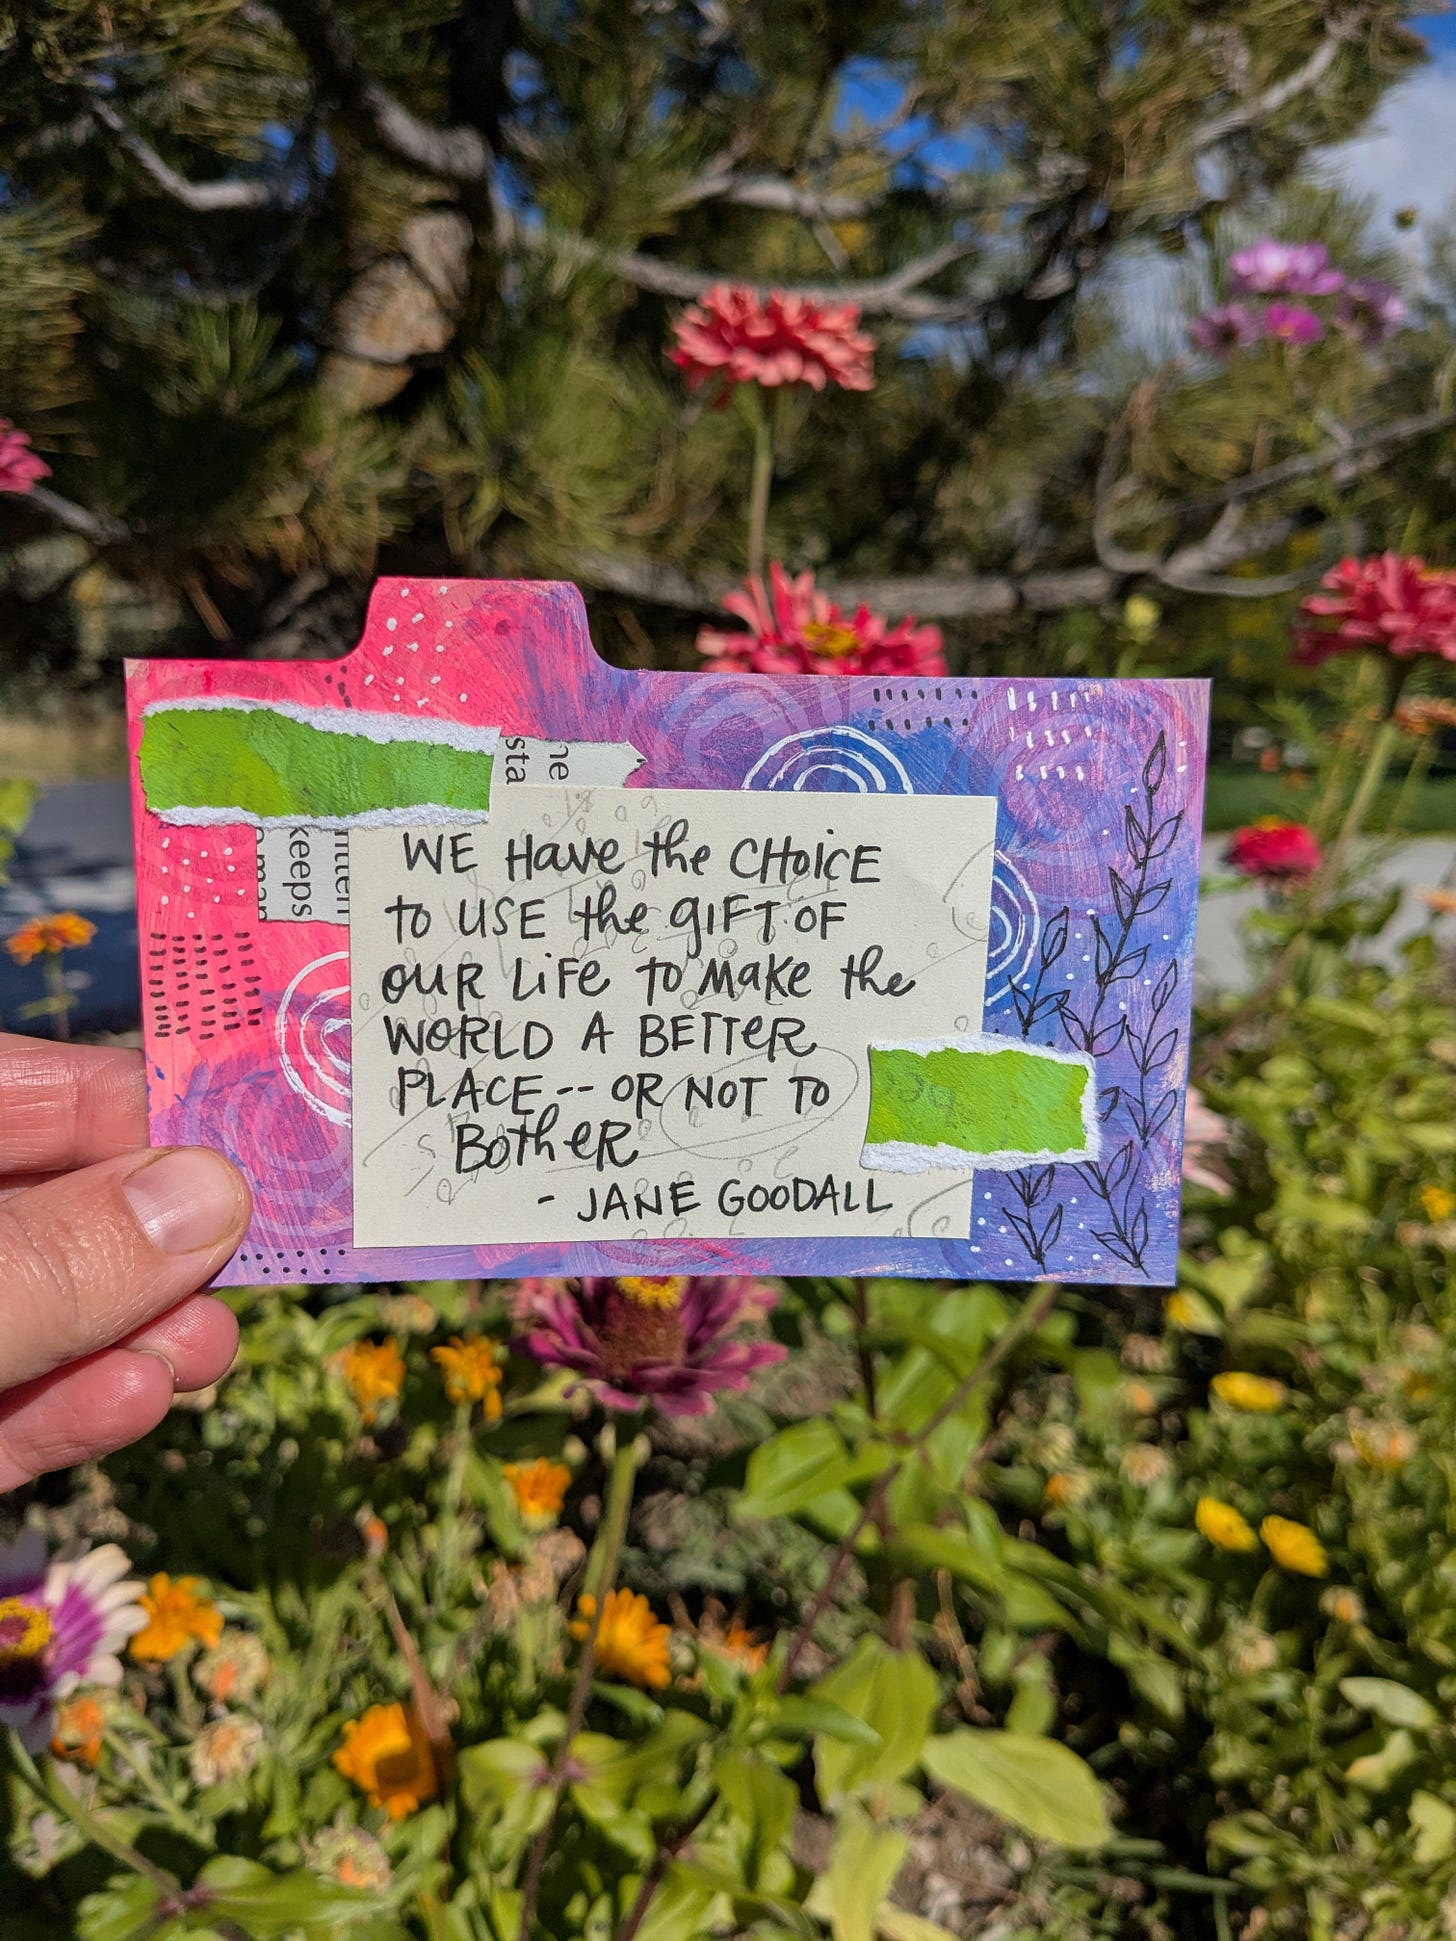 ne
sta
keeps
WE Have the CHOiCE
to USE the giFT OF
OUR LiFe to make the
WORLD A BETTeR
PLACE -- OR NOT TO
BotheR
- JANE GOODALL